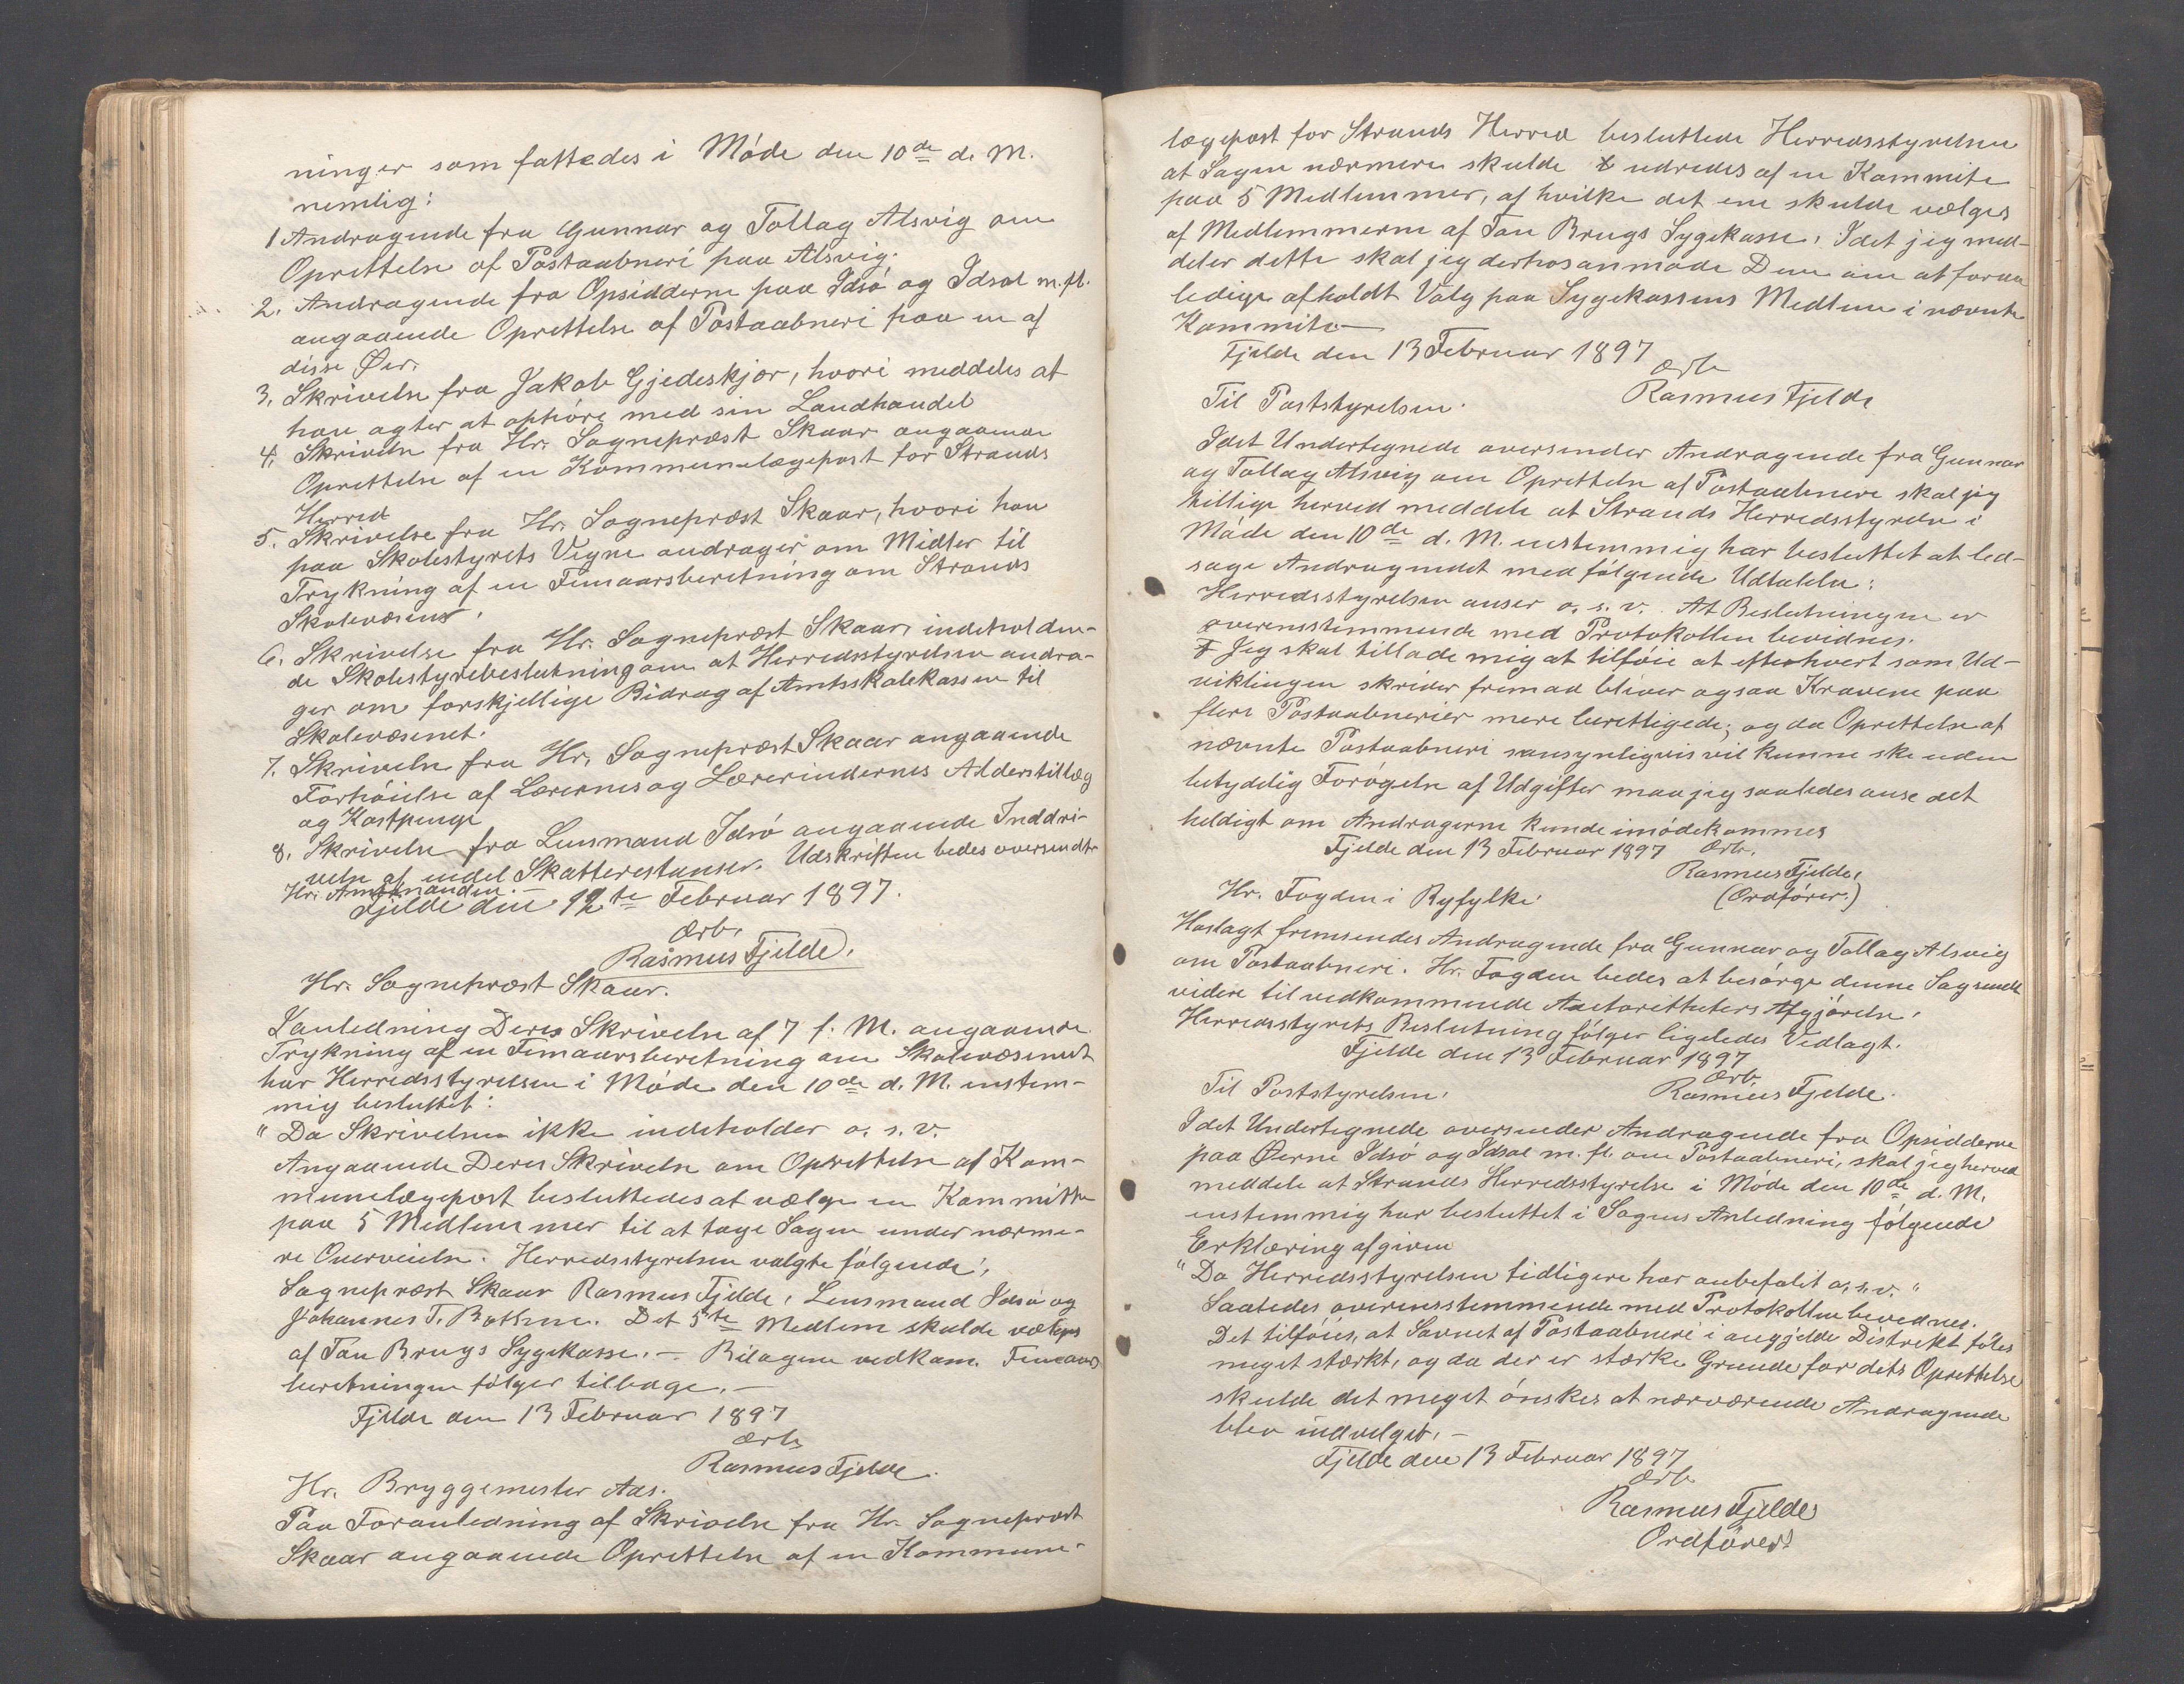 ninger som fattedes i Møde den 10de d. M.
nemlig:
1 Andragende fra Gunnar og Tollag Alsvig om
Oprettelse af Postaabneri paa Alsvig.
2. Andragende fra Opsidderne paa Idsø og Idsal m. fl.
angaaende Oprettelse af Postaabneri paa en af
disse Øer.
3. Skrivelse fra Jakob Gjedeskjær, hvori meddeles at
han agter at ophøre med sin Landhandel
4. Skrivelse fra Hr. Sogneprest Skaar angaaende
Oprettelse af en Kommunelægepost for Strands
Herred
5. Skrivelse fra Hr. Sognepræst Skaar, hvori han
paa Skolestyrets Vegne andrager om Midler til
Trykning af en Femaarsberetning om Strands
Skolevæsens.
6. Skrivelse fra Hr. Sognepræst Skaar, indeholden-
de Skolestyrebeslutning om at Herredsstyrelsen andra-
ger om forskjellige Bidrag af Amtsskolekassen til
Skolevæsenet.
7. Skrivelse fra Hr. Sognepræst Skaar angaaende
Forhøielse af Lærernes og Lærerindernes Alderstillæg
og Kostpenge
8. Skrivelse fra Lensmand Idsø angaaende Inddri-
velse af endel Skatterestanser. Udskriften bedes oversendt
Hr. Amtmanden.—
Fjelde den 12te Februar 1897.
Ærb.
Rasmus Fjelde.
Hr. Sognepræst Skaar.
I anledning Deres Skrivelse af 7 f. M. angaaende
Trykning af en Femaarsberetning om Skolevæsenet
har Herredsstyrelsen i Møde den 10de d. M. enstem-
mig besluttet:
" Da Skrivelsen ikke indeholder o. s. v.
Angaaende Deres Skrivelse om Oprettelse af Kom-
munelægepost besluttedes at vælge en Kommitte
paa 5 Medlemmer til at tage Sagen under nærme-
re Overveielse. Herredsstyrelsen valgte følgende:
Sognepræst Skaar Rasmus Fjelde, Lensmand Idsø og
Johannes T. Bothne. Det 5te Medlem skulde vælges
af Tau Brugs Sygekasse. — Bilagene vedkom. Femaars
beretningen følger tilbage. —
Fjelde den 13 Februar 1897
Ærb
Rasmus Fjelde.
Hr. Bryggemester Aas.
Paa Foranledning af Skrivelse fra Hr. Sognepræst
Skaar angaaende Oprettelse af en Kommune-
lægepost for Strands Herred besluttede Herredsstyrelsen
at Sagen nærmere skulde udredes af en Kommite
paa 5 Medlemmer, af hvilke det ene skulde vælges
af Medlemmerne af Tau Brugs Sygekasse. Idet jeg med-
deler dette skal jeg derhos anmode Dem om at foran
ledige afholdt Valg paa Sygekassens Medlem i nævnte
Kommite—
Fjelde den 13 Februar 1897
Ærb
Rasmus Fjelde
Til Poststyrelsen.
Idet Undertegnede oversender Andragende fra Gunnar
og Tollag Alsvig om Oprettelse af Postaabneri skal jeg
tillige herved meddele at Strands Herredsstyrelse i
Møde den 10de d. M. enstemmig har besluttet at led-
sage Andragendet med følgende Udtalelse:
Herredsstyrelsen anser o. s. v. At Beslutningen er
overensstemmende med Protokollen bevidnes.
Jeg skal tillade mig at tilføie at efterhvert som Ud-
viklingen skrider fremad bliver ogsaa Kravene paa
flere Postaabnerier mere berettigede; og da Oprettelse af
nævnte Postaabneri sansynligvis vil kunne ske uden
betydelig Forøgelse af Udgifter maa jeg saaledes anse det
heldigt om Andragerne kunde imødekommes
Fjelde den 13 Februar 1897
Ærb.
Rasmus Fjelde,
(Ordfører.)
Hr. Fogden i Ryfylke.
Hoslagt fremsendes Andragende fra Gunnar og Tollag Alsvig
om Postaabneri. Hr. Fogden bedes at besørge denne Sag sendt
videre til vedkommende Autoritheters Afgjørelse.
Herredsstyrets Beslutning følger ligeledes Vedlagt.
Fjelde den 13 Februar 1897
Ærb.
Rasmus Fjelde.
Til Poststyrelsen.
Idet Undertegnede oversender Andragende fra Opsidderne
paa Øerne Idsø og Idsal m. fl. om Postaabneri, skal jeg herved
meddele at Strands Herredsstyrelse i Møde den 10de d. M.
enstemmig har besluttet i Sagens Anledning følgende
Erklæring afgiven
" Da Herredsstyrelsen tidligere har anbefalet o, s. v. "
Saaledes overensstemmende med Protokollen bevidnes.
Det tilføies, at Savnet af Postaabneri i angjelde Distrekt føles
meget stærkt, og da der er stærke Grunde for dets Oprettelse
skulde det meget ønskes at nærværende Andragende
blev indvilget. —
Fjelde den 13 Februar 1897
Ærb
Rasmus Fjelde
Ordfører.